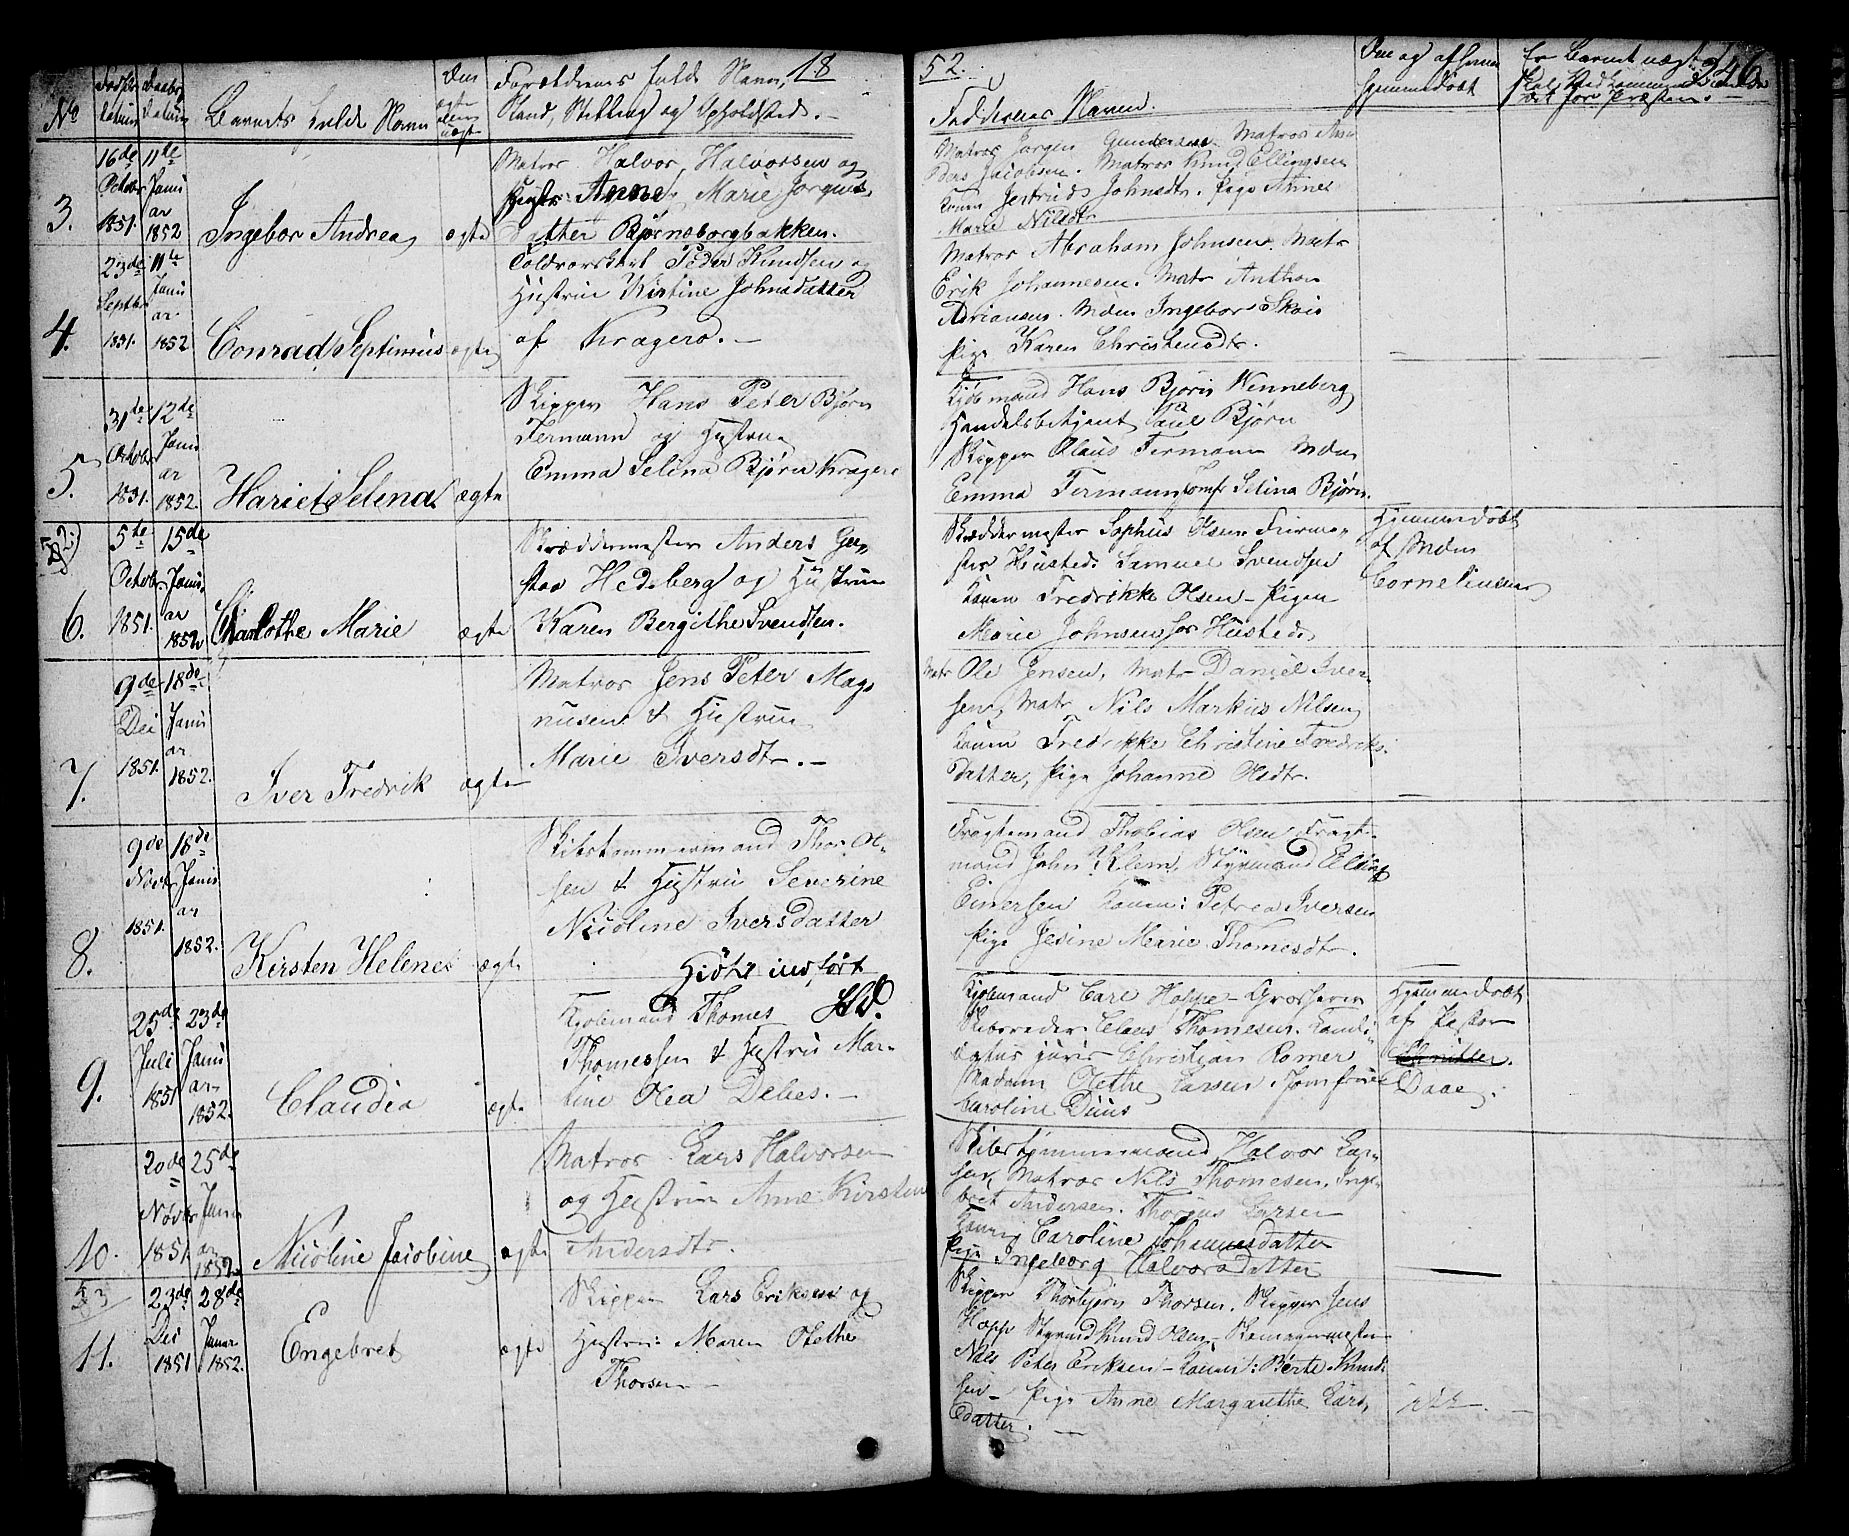 18
52.
346
No
Fødsels datum
Daabs datum
Barnets fulde Navn
Om ægte eller uægte
Forældrenes fulde Navn,
Stand, Stilling og Opholdsted.
Faddernes Navne.
Om og af hvem
hjemmedøbt
3.
16de October 1851.
11de Januar 1852
Ingebor Andrea
ægte
Matros Halvor Halvorsen og
Hustr. Anne Marie Jørgens
Datter Bjørneborgbakken.
Matros Jørgen Gundersen Matros An
ders Jacobsen. Matros Knud Ellingsen
Konen Jertrud Johnsdt. Pige Anne
Marie Nilsdt
4.
23de Septbr 1851.
11te Januar 1852
Conrad Septimus
ægte
Toldvorskarl Peder Knudsen og
Hustrue Kirstine Johnsdatter
af Kragerø. —
Matros Abraham Johnsen. Matr
Erik Johannesen. Matr Anthon
Adriansen. Mdm Ingebor Skois
Pige Karen Christensdtr.
5.
31te October 1851.
12de Januar 1852.
Hariet Selena
ægte
Skipper Hans Peter Bjørn
Fermann og Hustrue
Emma Selina Bjørn Kragerø
Kjøbmand Hans Bjørn Wenneberg
Handelsbetjent Paul Bjørn
Skipper Olaus Fermann Mdm
Emma Fermann, Jomfr Selina Bjørn.
6.
5te October 1851.
15de Januar 1852
Charlothe Marie
ægte
Skræddermester Anders Gu-
stav Hedeberg og Hustrue
Karen Bergithe Svendsen.
Skræddermester Sophus Olsen
Husted. Samuel Svendsen
Konen Fredrikke Olsen — Pigen
Marie Johnsen for Husted.
Hjemmedøbt
af Mdm
Corneliusen
7.
9de Dei 1851.
18de Januar 1852.
Iver Fredrik
ægte
Matros Jens Peter Mag-
nusen & Hustrue
Marie Iversdtr. —
Matr Ole Jensen, Matr Daniel Iver-
sen, Matr Nils Markus Nilsen
Konen Fredrikke Christine Fredriks-
datter, Pige Johanne Olsdtr.
8.
9de Novbr 1851.
18de Januar 1852.
Kirsten Helene
ægte
Skibstømmermand Thor Ol-
sen & Hustru Severine
Nicoline Iversdatter
Fragtemand Thobias Olsen Fragt-
mand John Klem, Styrmand Elling
Einersen Konen: Petrea Iversen
Pige Jesine Marie Thomesdtr.
9.
25de Juli 1851
23de Januar 1852.
Claudia
ægte
Kjøbmand Thomes
Thomessen & Hustru Mar-
tine Olea Debes. —
Kjøbmand Carl Hoppe — Grosserer
Skibsreder Claus Thomesen. Kandi-
datus juris Christian Romer
Madam Olethe Larsen, Jomfrue
Caroline Duus
Hjemmedøbt
af Pastor
Daae.
10.
20de Novbr 1851.
25de Januar 1852
Nicoline Jacobine
ægte
Matros Lars Halvorsen
og Hustrue Anne Kirsten
Andersdtr.
Skibstømmermand Halvor Lar-
sen, Matros Nils Thomesen, Inge-
bret Andersen. Thorius Larsen
Konen Caroline Johannesdatter
Pige Ingeborg Halvorsdatter
11.
23de Dei 1851
28de Januar 1852.
Engebret
ægte
Skipper Lars Eriksen og
Hustru: Maren Olethe
Thorsen —
Skipper Thorbjørn Thorsen. Skipper Jens
Hopp Styrmd Knud Olsen — Skomagermester
Nils Peter Eriksen — Konen: Berte Knud-
sen — Pige Anne Margrethe Lars
datter. —